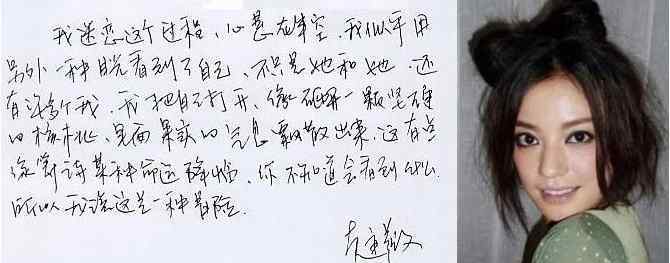 我迷恋这个过程、心悬在半空、我似乎用
另外一种眼看到了自己、不只是她和她、还
有许多个我、我把自己打开、像砸开一颗坚硬
的核桃、里面果肉的气息飘散出来、这有点
像等待某种命运降临、你不知道会看到什么
所以我说这是一种冒险.